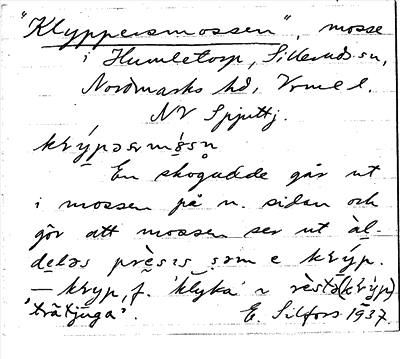 "Klyppersmossen", mosse
i Humletorp, Silleruds sn,
Nordmarks hd, Vrml l.
NV Spjuttj.
krýpərmǫ̊sn
En skogudde går ut
i mossen på n. sidan och
gör att mossen ser ut àl-
deləs prèsis səm e krýp.
— kryp, f. 'klyka' i rèstə(krýp)
'trätjuga'. E. Silfors 1937.